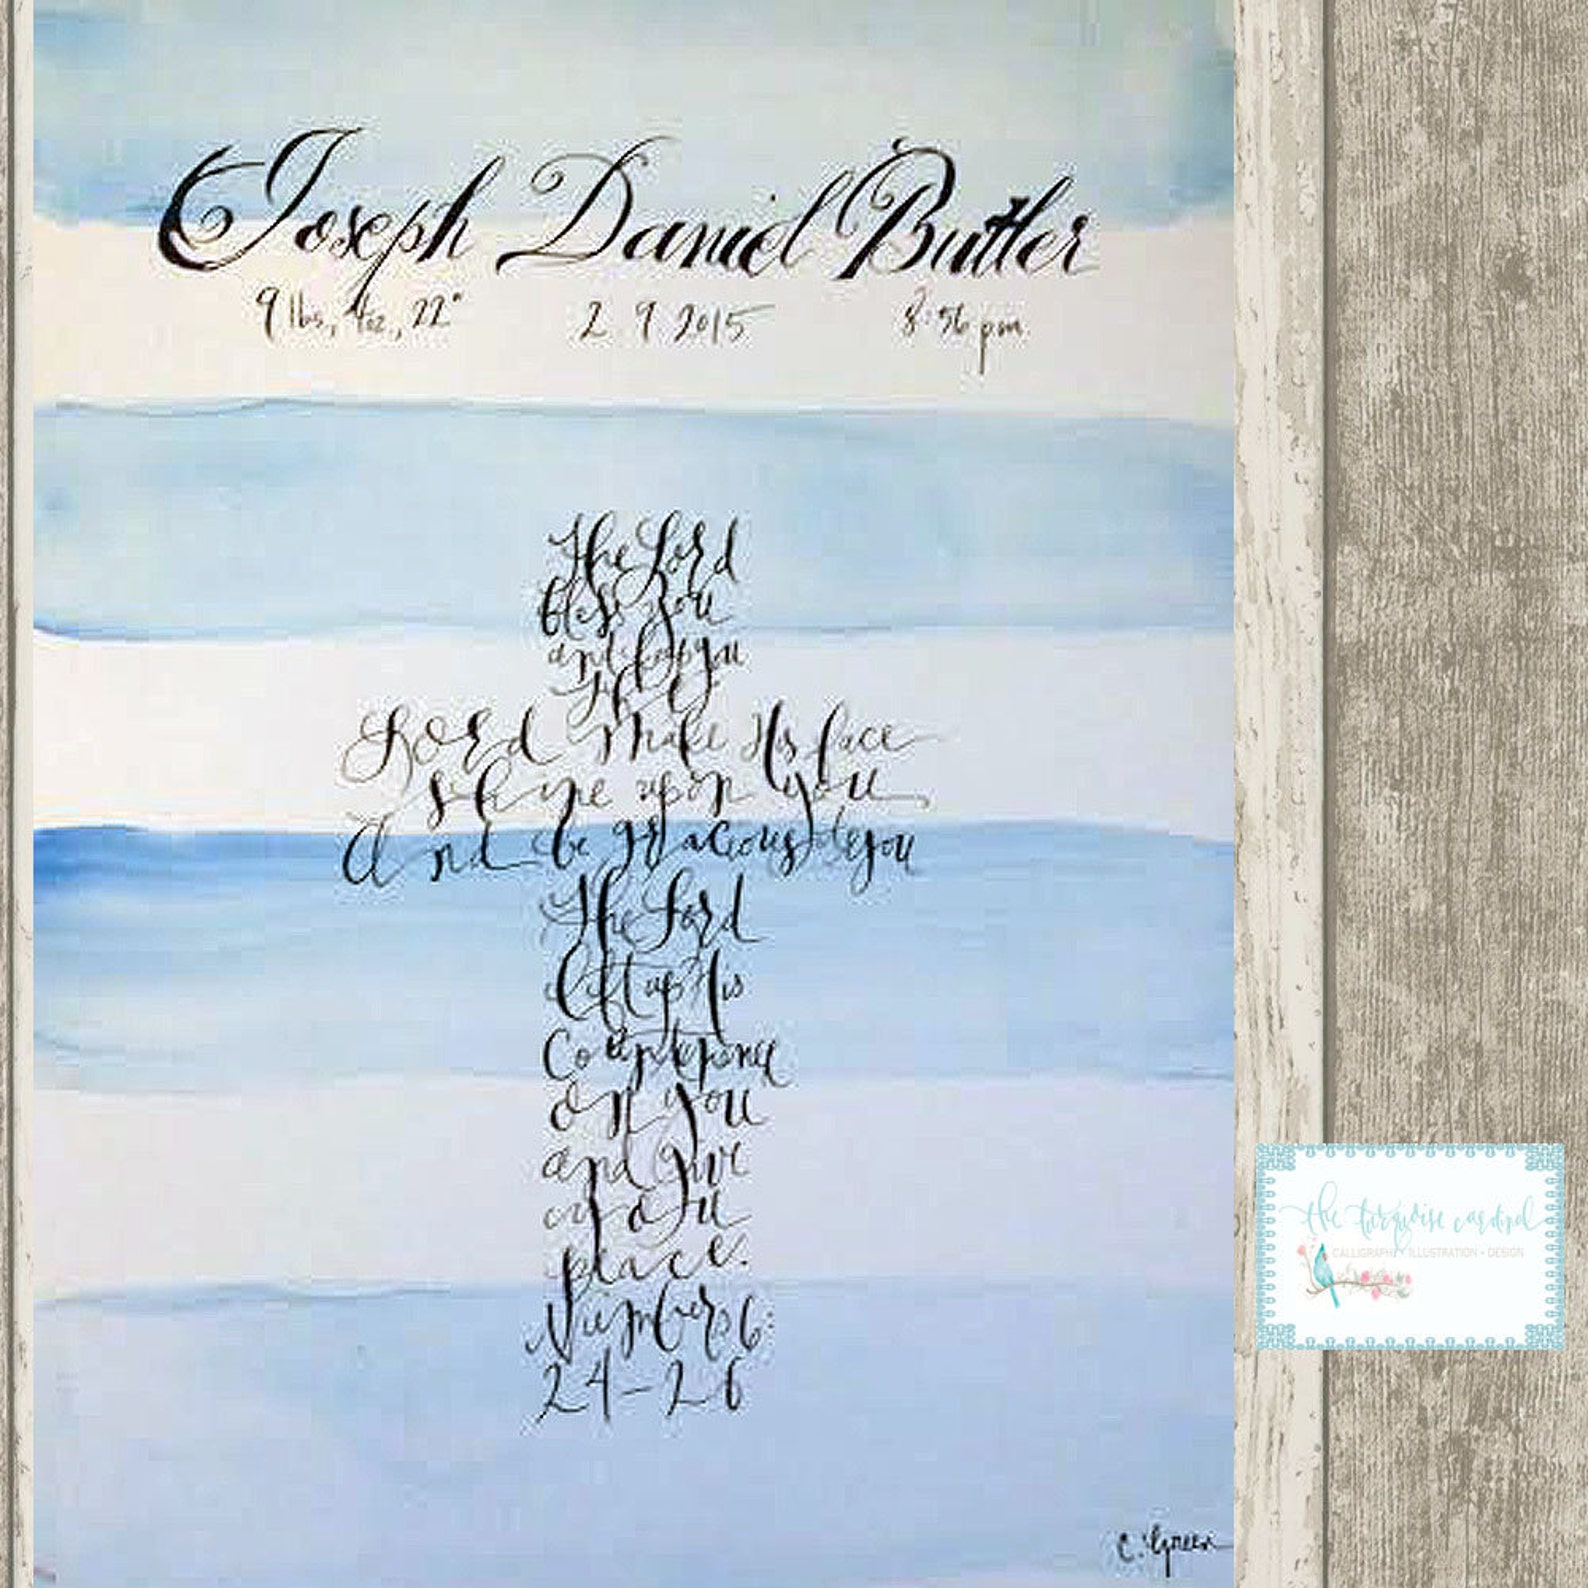 Joseph Daniel Butler
9 lbs, 4oz, 22" 2.9.2015 8:56 pm
The Lord
bless you
and keep you
The
Lord make His face
shine upon you
And be gracious to you
The Lord
lift up His
Countenance
on you
and give
you
peace.
Numbers 6:
24-26
C. Green
the turquoise cardinal
CALLIGRAPHY · ILLUSTRATION · DESIGN